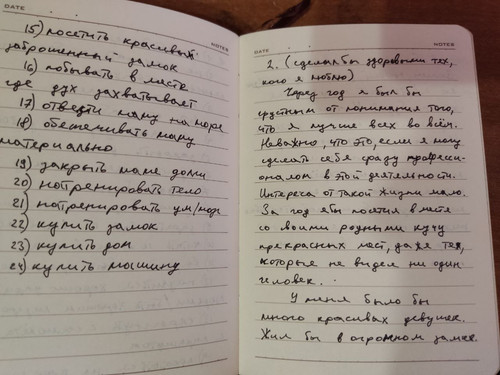 DATE
NOTES
15) посетить красивый
заброшенный замок
16) побывать в месте
где дух захватывает
17) отвезти маму на море
18) обеспечивать маму
материально
19) закрыть маме долги
20) потренировать тело
21) потренировать ум/мозг
22) купить замок
23) купить дом
24) купить машину
DATE
NOTES
2. (сделал бы здоровыми тех,
кого я люблю)
Через год я был бы
грустным от понимания того,
что я лучше всех во всём.
Неважно, что это, если я могу
сделать себя сразу професси-
оналом в этой деятельности.
Интереса от такой жизни мало.
За год я бы посетил вместе
со своими родными кучу
прекрасных мест, даже тех,
которые не видел ни один
человек.
У меня было бы
много красивых девушек.
Жил бы в огромном замке.